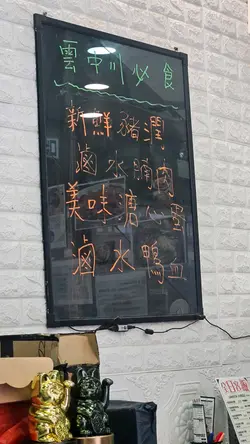 雲中川必食
新鮮豬潤
滷水腩肉
美味溏心蛋
滷水鴨血